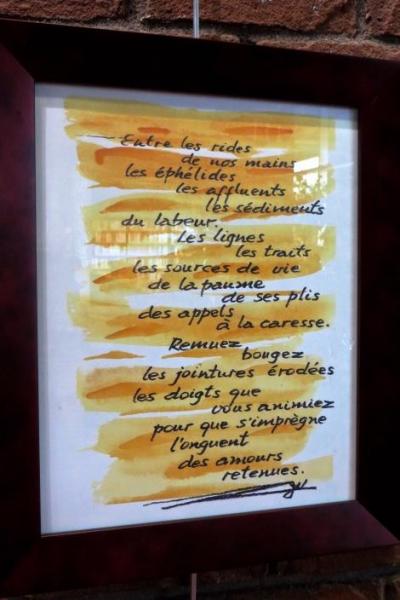 Entre les rides
de nos mains
les éphélides
les affluents
les sédiments
du labeur.
Les lignes
les traits
les sources de vie
de la paume
de ses plis
des appels
à la caresse.
Remuez
bougez
les jointures érodées
les doigts que
vous animiez
pour que s'imprègne
l'onguent
des amours
retenues.